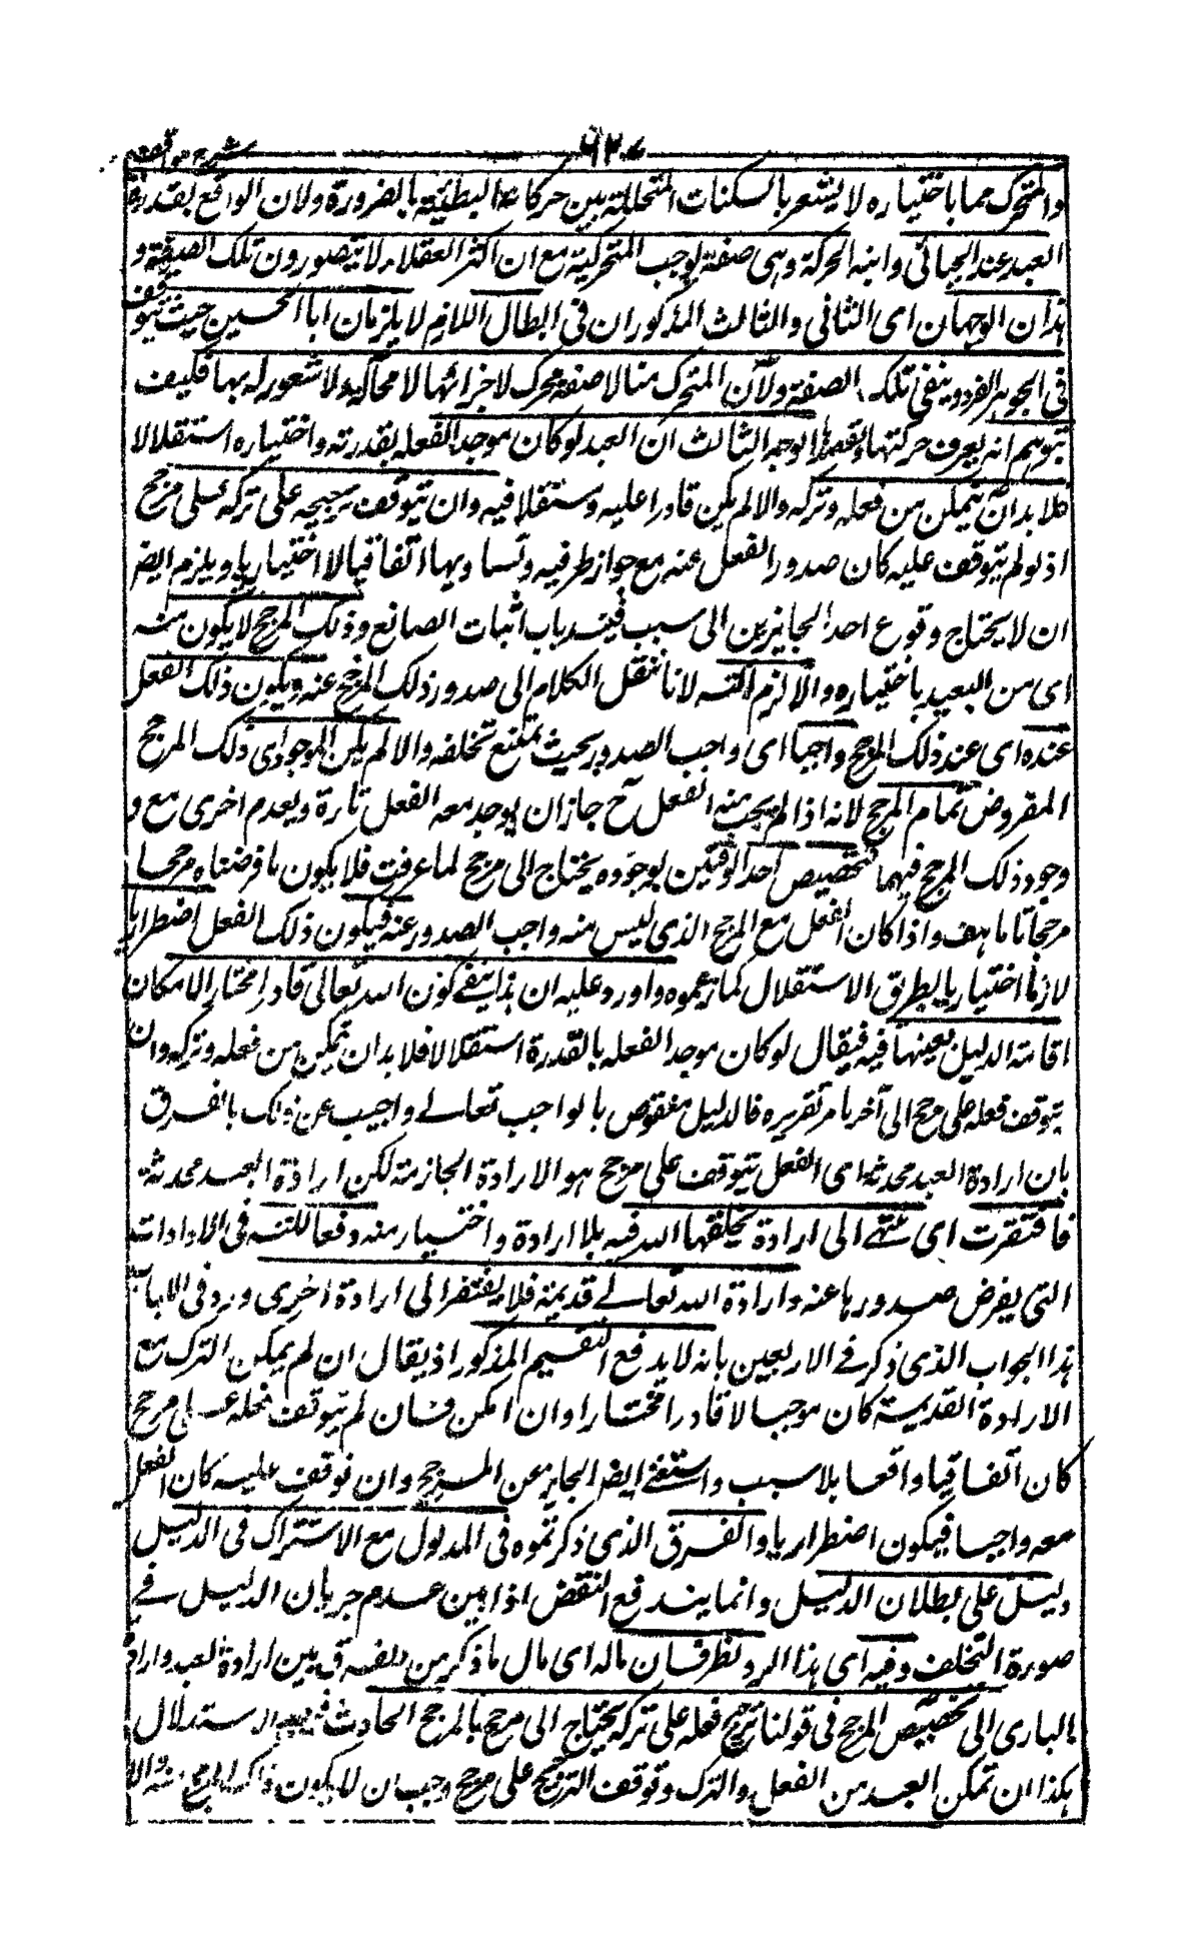 شرح مواقف
٦٢٠
والمتحرك منا باختياره لا يشعر بالسكنات المتخللة بين حركاته البطيئة بالضرورة ولان الواقع بقدرة
العبد عند الجبائي وابنه الحركة وهى صفة توجب المتحركية مع ان اكثر العقلاء لا يتصورون تلك الصفة و
هذان الوجهان اى الثانى والثالث المذكوران فى ابطال اللازم لا يلزمان ابا الحسين حيث يتوقف
فى الجوهر الفرد وينفى تلك الصفة ولان المتحرك منا لاصبعه محرك لاجزائها لا محالة ولا شعور له بها فكيف
يتوهم انه يعرف حركتها ويقصدها الوجه الثالث ان العبد لو كان موجدا لفعله بقدرته واختياره استقلالا
فلا بد ان يتمكن من فعله وتركه والا لم يكن قادرا عليه مستقلا فيه وان يتوقف ترجيحه على تركه على مرجح
اذ لو لم يتوقف عليه كان صدور الفعل عنه مع جواز طرفيه وتساويهما اتفاقيا لا اختياريا ويلزم ايضا
ان لا يحتاج وقوع احد الجائزين الى سبب فينسد باب اثبات الصانع وذلك المرجح لا يكون منه
اى من العبد باختياره والا لزم التسـ لانا ننقل الكلام الى صدور ذلك المرجح عنه ويكون ذلك الفعل
عنده اى عند ذلك المرجح واجبا اى واجب الصدور بحيث يمتنع تخلفه والا لم يكن الموجود اى ذلك المرجح
المفروض تمام المرجح لانه اذا لم يجب منه الفعل ح جاز ان يوجد معه الفعل تارة ويعدم اخرى مع و
وجود ذلك المرجح فيهما فتخصيص احد الوقتين بوجوده يحتاج الى مرجح لما عرفت فلا يكون ما فرضناه مرجحا
مرجحا تاما هف واذا كان الفعل مع المرجح الذى ليس منه واجب الصدور عنه فيكون ذلك الفعل اضطراريا
لازما اختياريا بطريق الاستقلال كما زعموه واورد عليه ان هذا ينفى كون الله تعالى قادرا مختارا لامكان
اقامة الدليل بعينها فيه فيقال لو كان موجدا لفعله بالقدرة استقلالا فلا بد ان يتمكن من فعله وتركه وان
يتوقف فعله على مرجح الى آخر ما مر تقريره فالدليل منقوض بالواجب تعالى واجيب عن ذلك بالفرق
بان ارادة العبد محدثة اى الفعل يتوقف على مرجح هو الارادة الجازمة لكن ارادة العبد محدثة
فافتقرت اى ينتهى الى ارادة يخلقها الله فيه بلا ارادة واختيار منه دفعا للتسـ فى الارادات
التى يفرض صدورها عنه وارادة الله تعالى قديمة فلا يفتقر الى ارادة اخرى ورد فى اللباب
هذا الجواب الذى ذكر فى الاربعين بانه لا يدفع التقسيم المذكور اذ يقال ان لم يمكن الترك مع
الارادة القديمة كان موجبا لا قادرا مختارا وان امكن فان لم يتوقف فعله على مرجح
كان اتفاقيا واقعا بلا سبب واستغنى ايضا الجائز عن المرجح وان توقف عليه كان الفعل
معه واجبا فيكون اضطراريا والفرق الذى ذكرتموه فى المدلول مع الاشتراك فى الدليل
دليل على بطلان الدليل وانما يندفع النقض اذا بين عدم جريان الدليل فى
صورة التخلف وفيه اى هذا الرد نظر فان ماله اى مال ما ذكر من الفرق بين ارادة العبد وارادة
البارى الى تخصيص المرجح فى قولنا ترجيح فعله على تركه يحتاج الى مرجح بالمرجح الحادث الاستدلال
هكذا ان تمكن العبد من الفعل والترك وتوقف الترجيح على مرجح وجب ان لا يكون ذلك المرجح منه والا